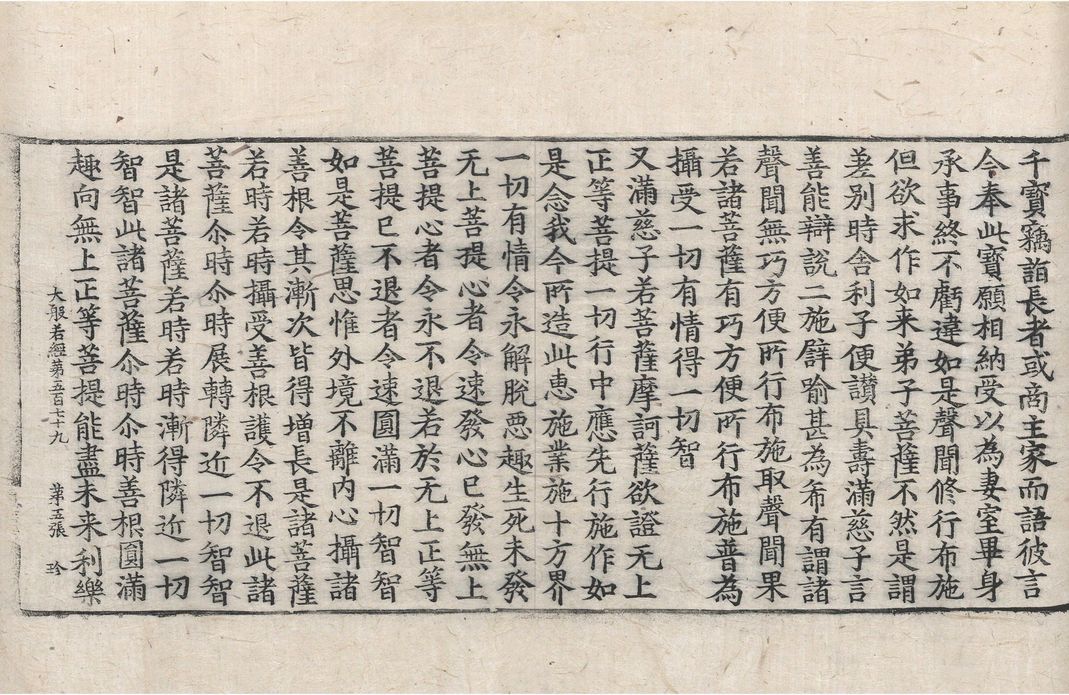 千寶竊詣長者或商主家而語彼言
今奉此寶願相納受以為妻室畢身
承事終不虧違如是聲聞修行布施
但欲求作如来弟子菩薩不然是謂
差別時舍利子便讃具壽滿慈子言
善能辯說二施譬喻甚為希有謂諸
聲聞無巧方便所行布施取聲聞果
若諸菩薩有巧方便所行布施普為
攝受一切有情得一切智
又滿慈子若菩薩摩訶薩欲證无上
正等菩提一切行中應先行施作如
是念我今所造此惠施業施十方界
一切有情令永解脫惡趣生死未發
无上菩提心者令速發心已發無上
菩提心者令永不退若於无上正等
菩提已不退者令速圓滿一切智智
如是菩薩思惟外境不離內心攝諸
善根令其漸次皆得增長是諸菩薩
若時若時攝受善根護令不退此諸
菩薩尒時尒時展轉隣近一切智智
是諸菩薩若時若時漸得隣近一切
智智此諸菩薩尒時尒時善根圓滿
大般若經第五百七十九　第五張　珍
趣向無上正等菩提能盡未来利樂